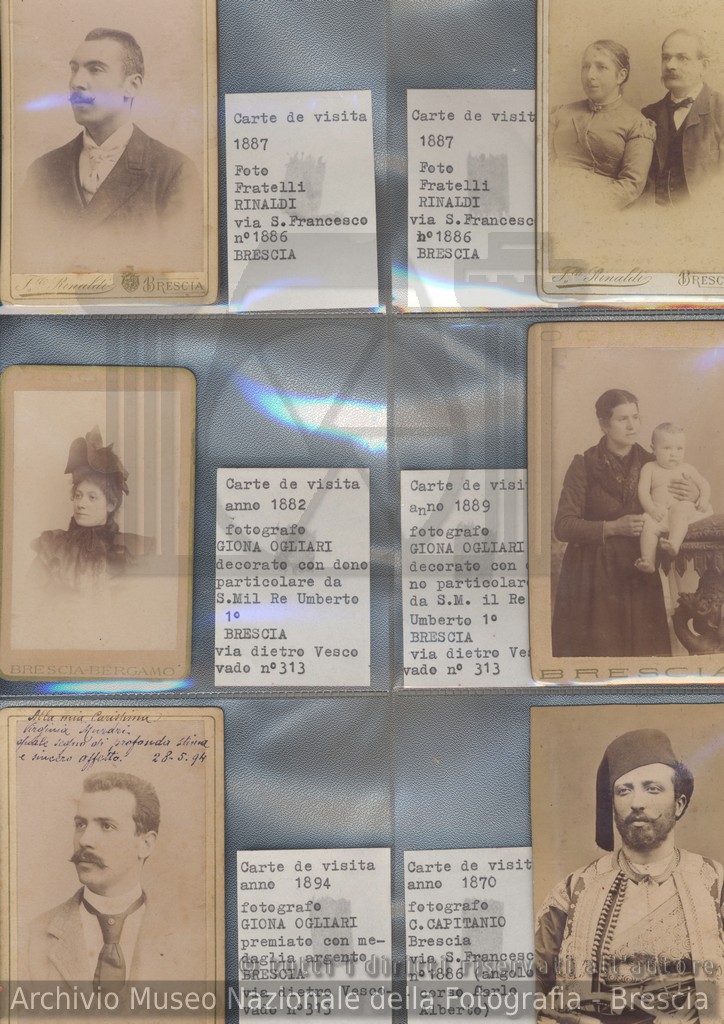 Carte de visita
1887
Foto
Fratelli
RINALDI
via S.Francesco
nº1886
BRESCIA
Carte de visit
1887
Foto
Fratelli
RINALDI
via S.Francesc
nº1886
BRESCIA
F.lli Rinaldi BRESCIA
F.lli Rinaldi BRESC
Carte de visita
anno 1882
fotografo
GIONA OGLIARI
decorato con dono
particolare da
S.Mil Re Umberto
1º
BRESCIA
via dietro Vesco
vado nº313
Carte de visi
anno 1889
fotografo
GIONA OGLIARI
decorato con
no particolar
da S.M. il Re
Umberto 1º
BRESCIA
via dietro Ve
vado nº 313
BRESCIA-BERGAMO
BRESCIA
Alla mia Carissima
Virginia Murari
quale segno di profonda stima
e sincero affetto. 28-5.94
Carte de visita
anno 1894
fotografo
GIONA OGLIARI
premiato con me-
daglia argento
BRESCIA
via dietro Vesco-
vado nº313
Carte de visit
anno 1870
fotografo
C.CAPITANIO
Brescia
via S.Francesc
nº1886 (angolo
corso Carlo
Alberto)
© tutti i diritti riservati all'autore
Archivio Museo Nazionale della Fotografia - Brescia